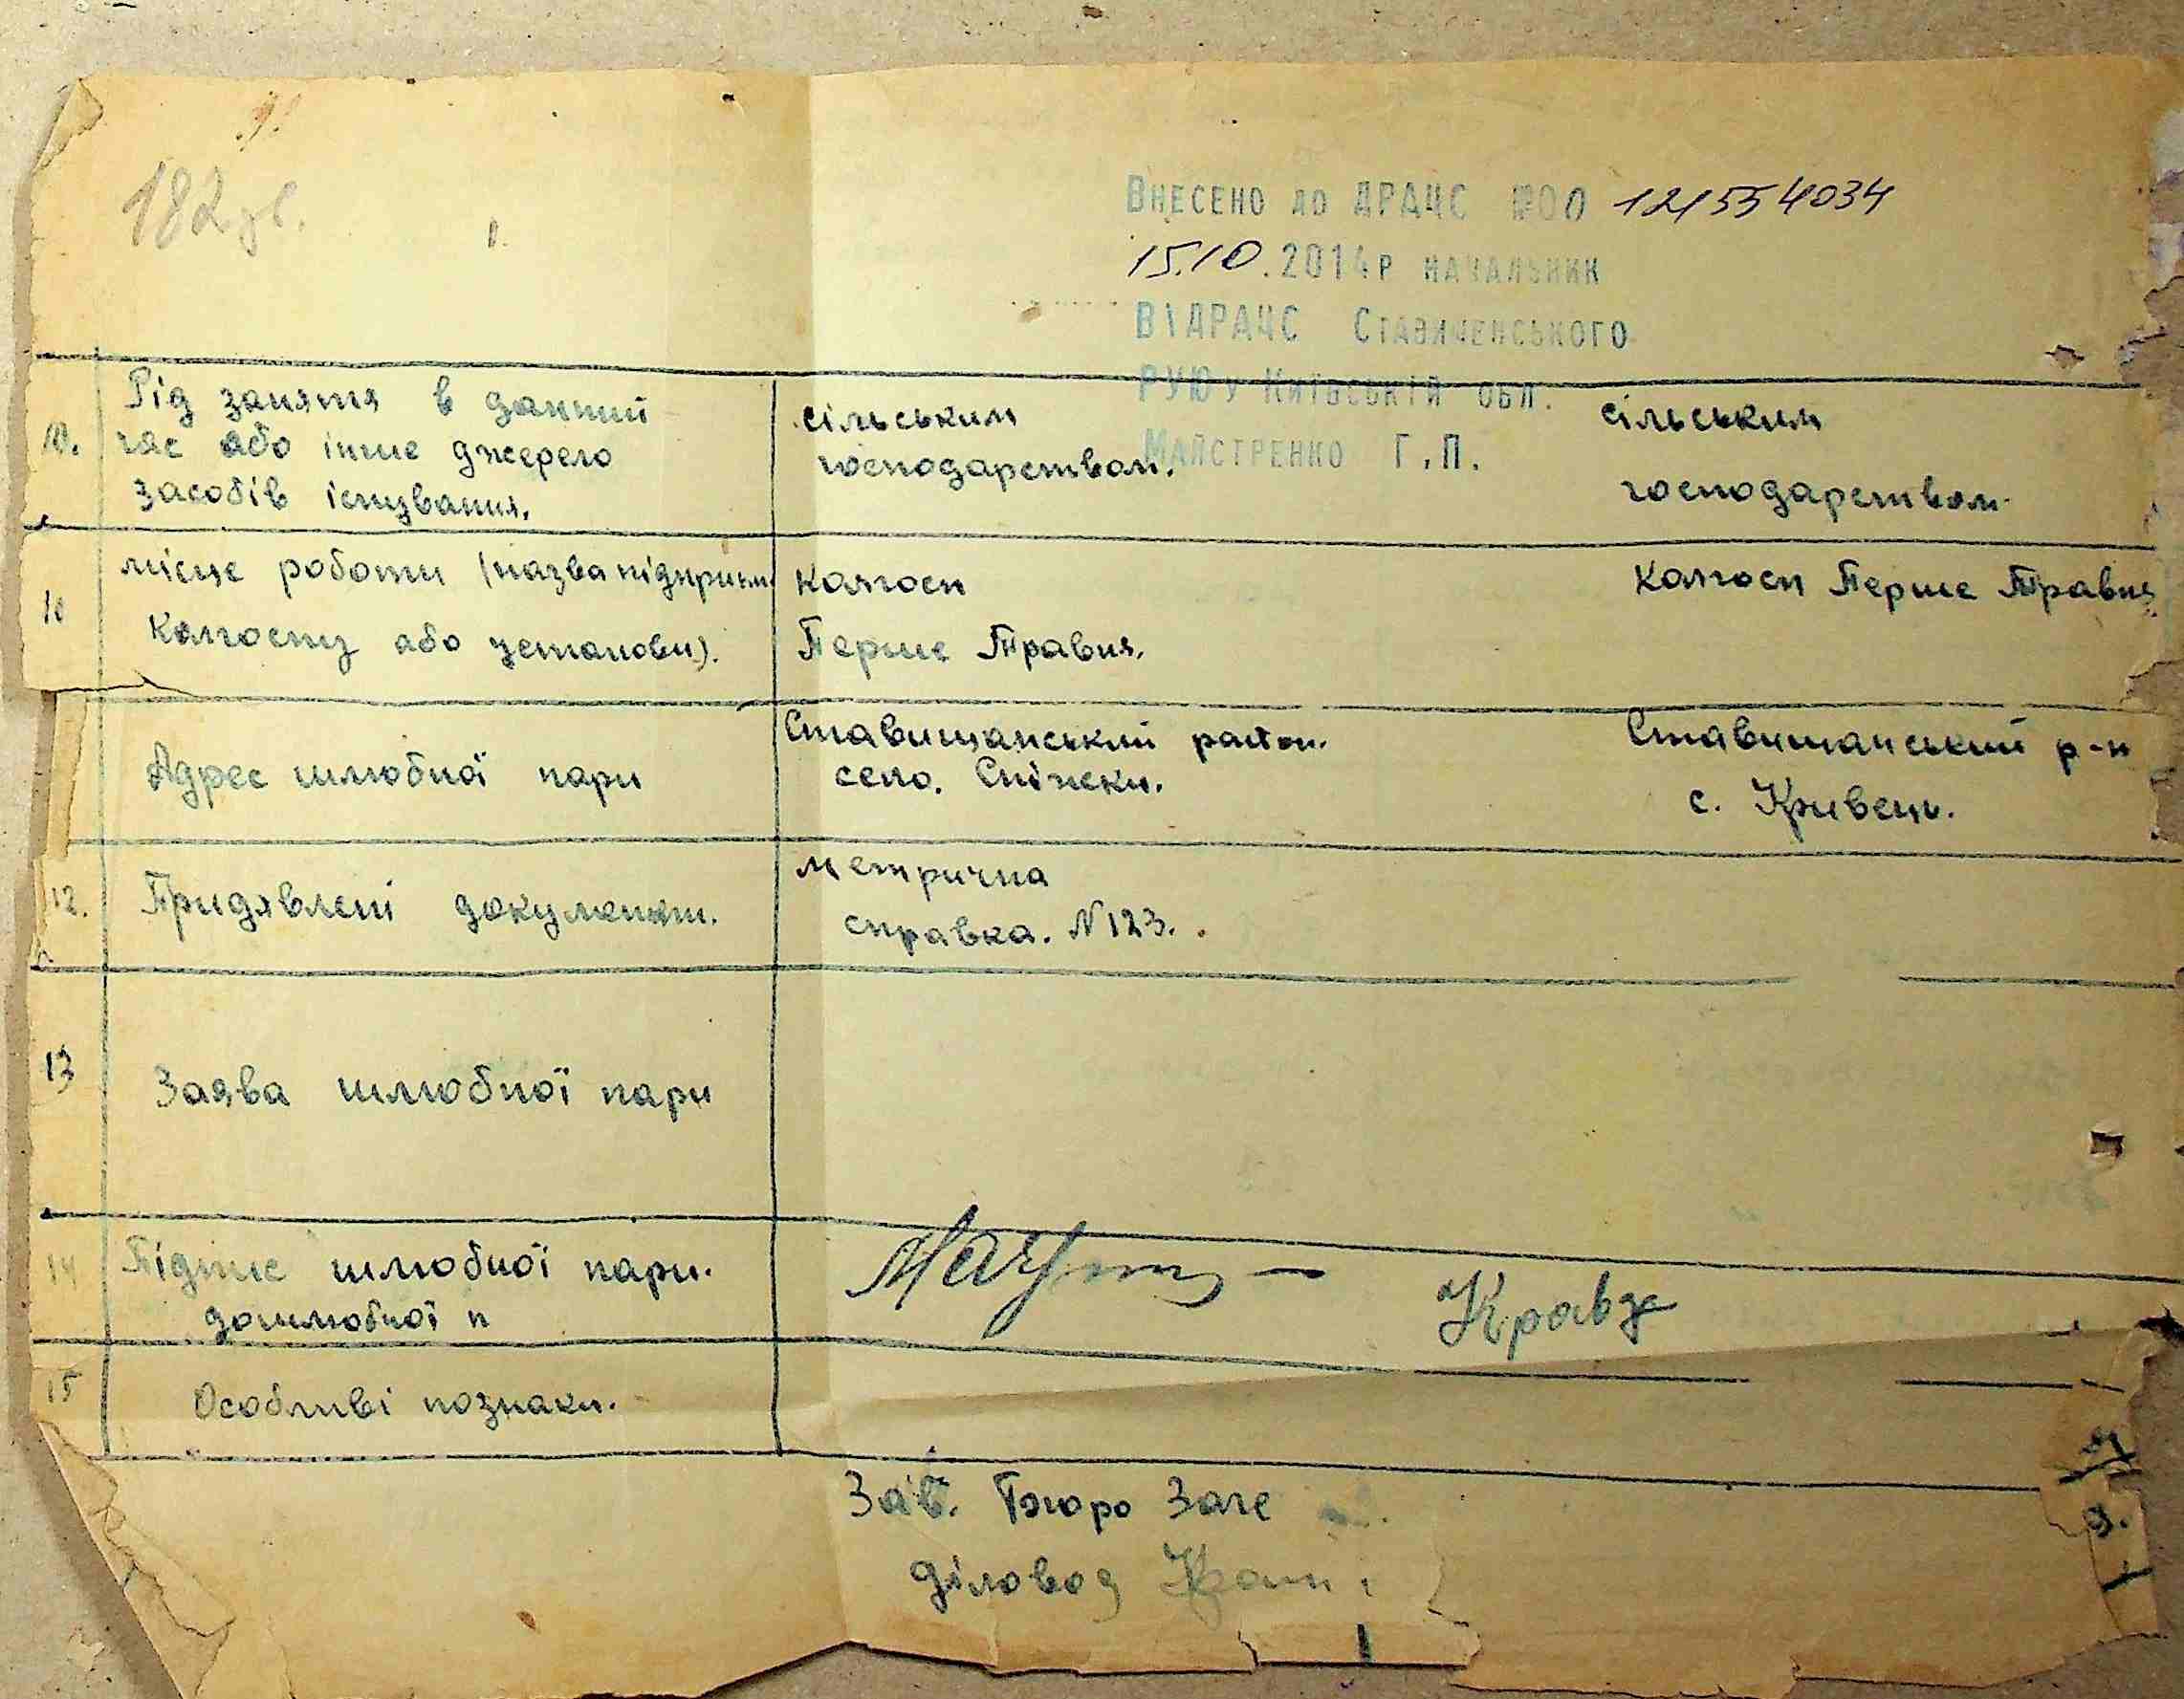 182 зв.
Внесено до ДРАЧС №00 121554034
15.10.2014р начальник
ВІДРАЧС Ставиченського
РУЮ у Київській обл.
Майстренко Г.П.
10. Рід заняття в данний
час або інше джерело
засобів існування.
сільським
господарством.
сільським
господарством
10 місце роботи (назва підприєм
колгоспу або установи).
колгосп
Перше Травня.
колгосп Перше Травня
Адрес шлюбної пари
Ставищанський район.
село. Сніжки.
Ставищанський р-н
с. Кривець.
12. Придявлені документ.
метрична
справка. №123.
13 Заява шлюбної пари
14 Підпис шлюбної пари.
дошлюбної п
Кравц
15 Особливі познаки.
Зав. Бюро Загс
діловод